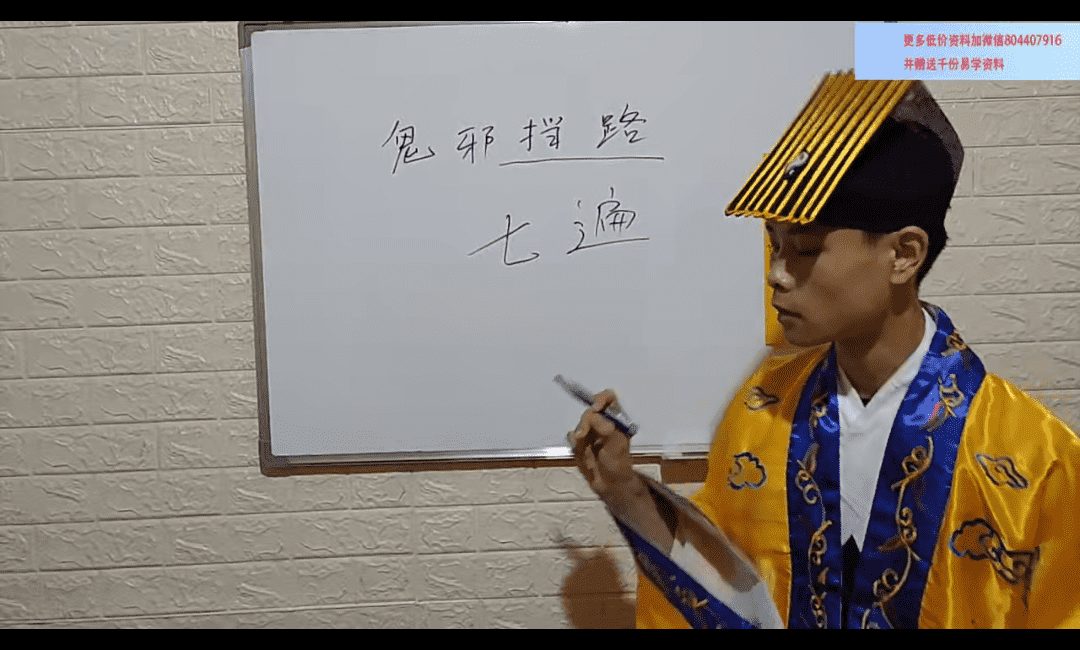 更多低价资料加微信804407916
并赠送千份易学资料
鬼邪挡路
七遍